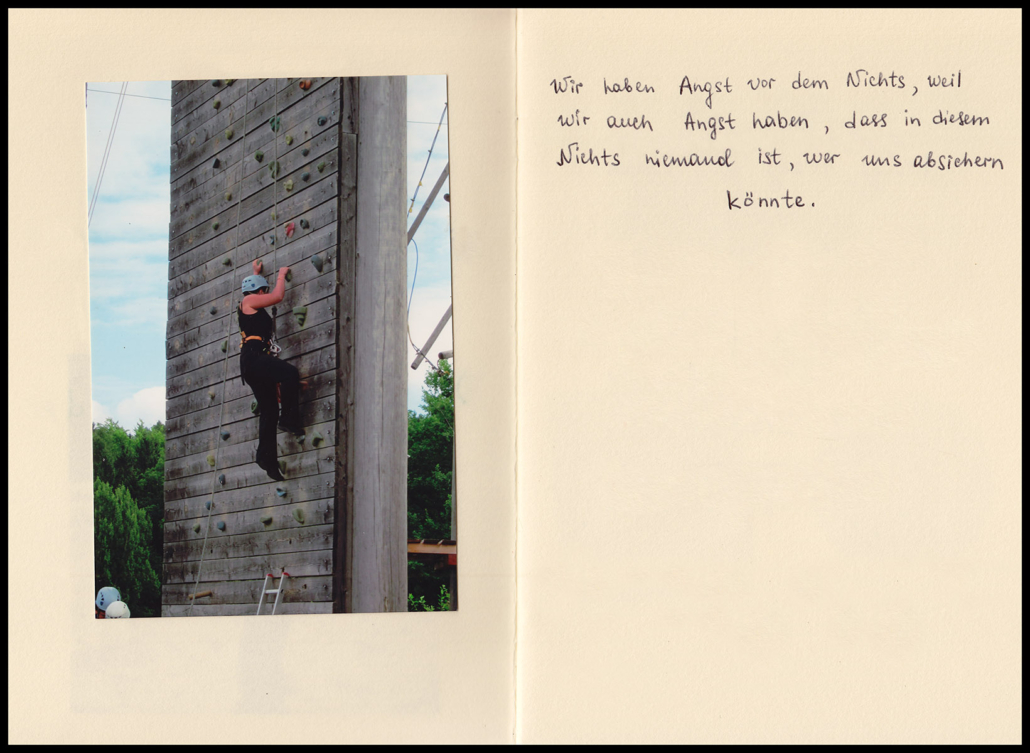 Wir haben Angst vor dem Nichts, weil
wir auch Angst haben, dass in diesem
Nichts niemand ist, wer uns absichern
könnte.